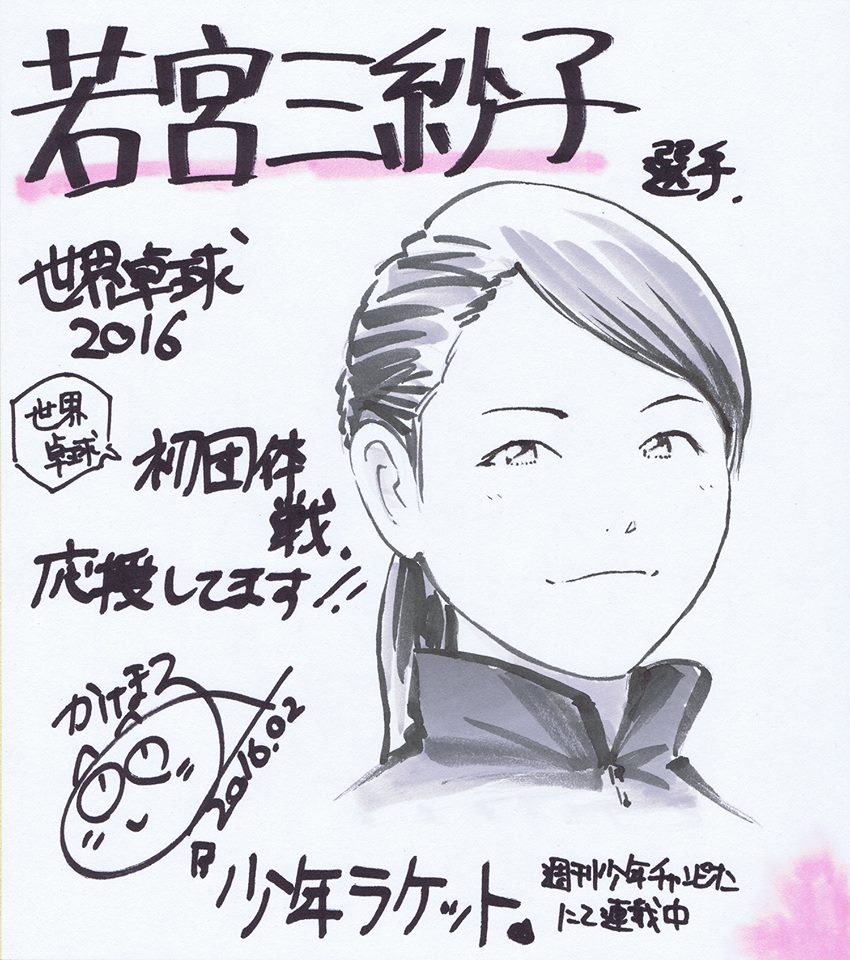 若宮三紗子
選手.
世界卓球
2016
世界
卓球
初団体
戦.
応援してます!!
かけまる
2016.02
少年ラケット。
週刊少年チャンピオン
にて連載中